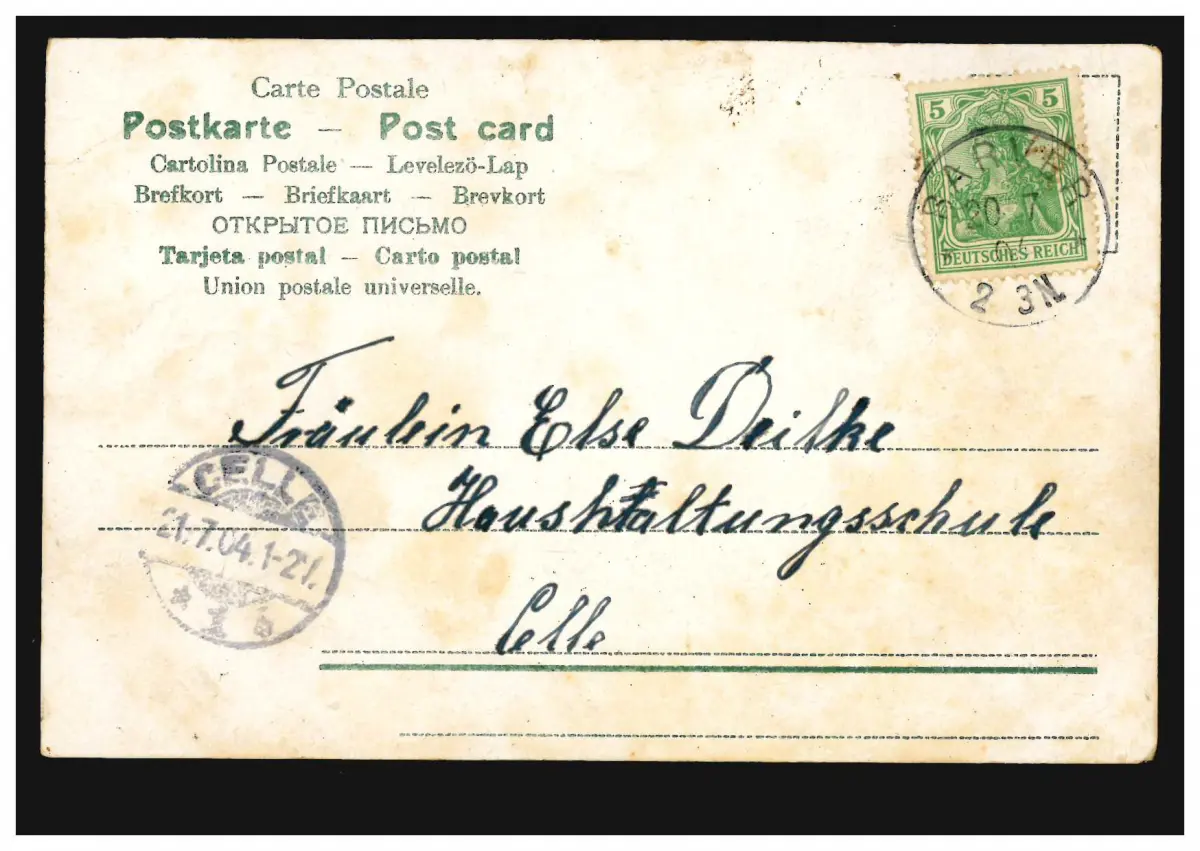 Carte Postale
Postkarte — Post card
Cartolina Postale — Levelezö-Lap
Brefkort — Briefkaart — Brevkort
ОТКРЫТОЕ ПИСЬМО
Tarjeta postal — Carto postal
Union postale universelle.
5 5
DEUTSCHES REICH
20 7
04
2 3N
Fräulein Else Deilke
Haushaltungsschule
Celle
CELLE
21.7.04.1-2N.
* 1 b